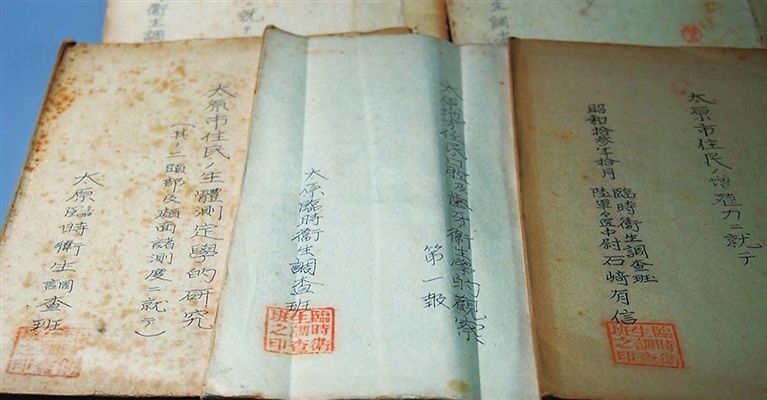 衞生調
就テ
太原市住民ノ増殖力ニ就テ
昭和拾參年拾月
臨時衞生調査班
陸軍々醫中尉 石﨑有信
臨時衞
生調査
班之印
住民ノ口腔及齒牙衞生學的觀察
第一報
太原臨時衞生調査班
臨時衞
生調査
班之印
太原市住民ノ生體測定學的研究
(其ノ一頭部及顔面諸測度ニ就テ)
太原臨時衞生調査班